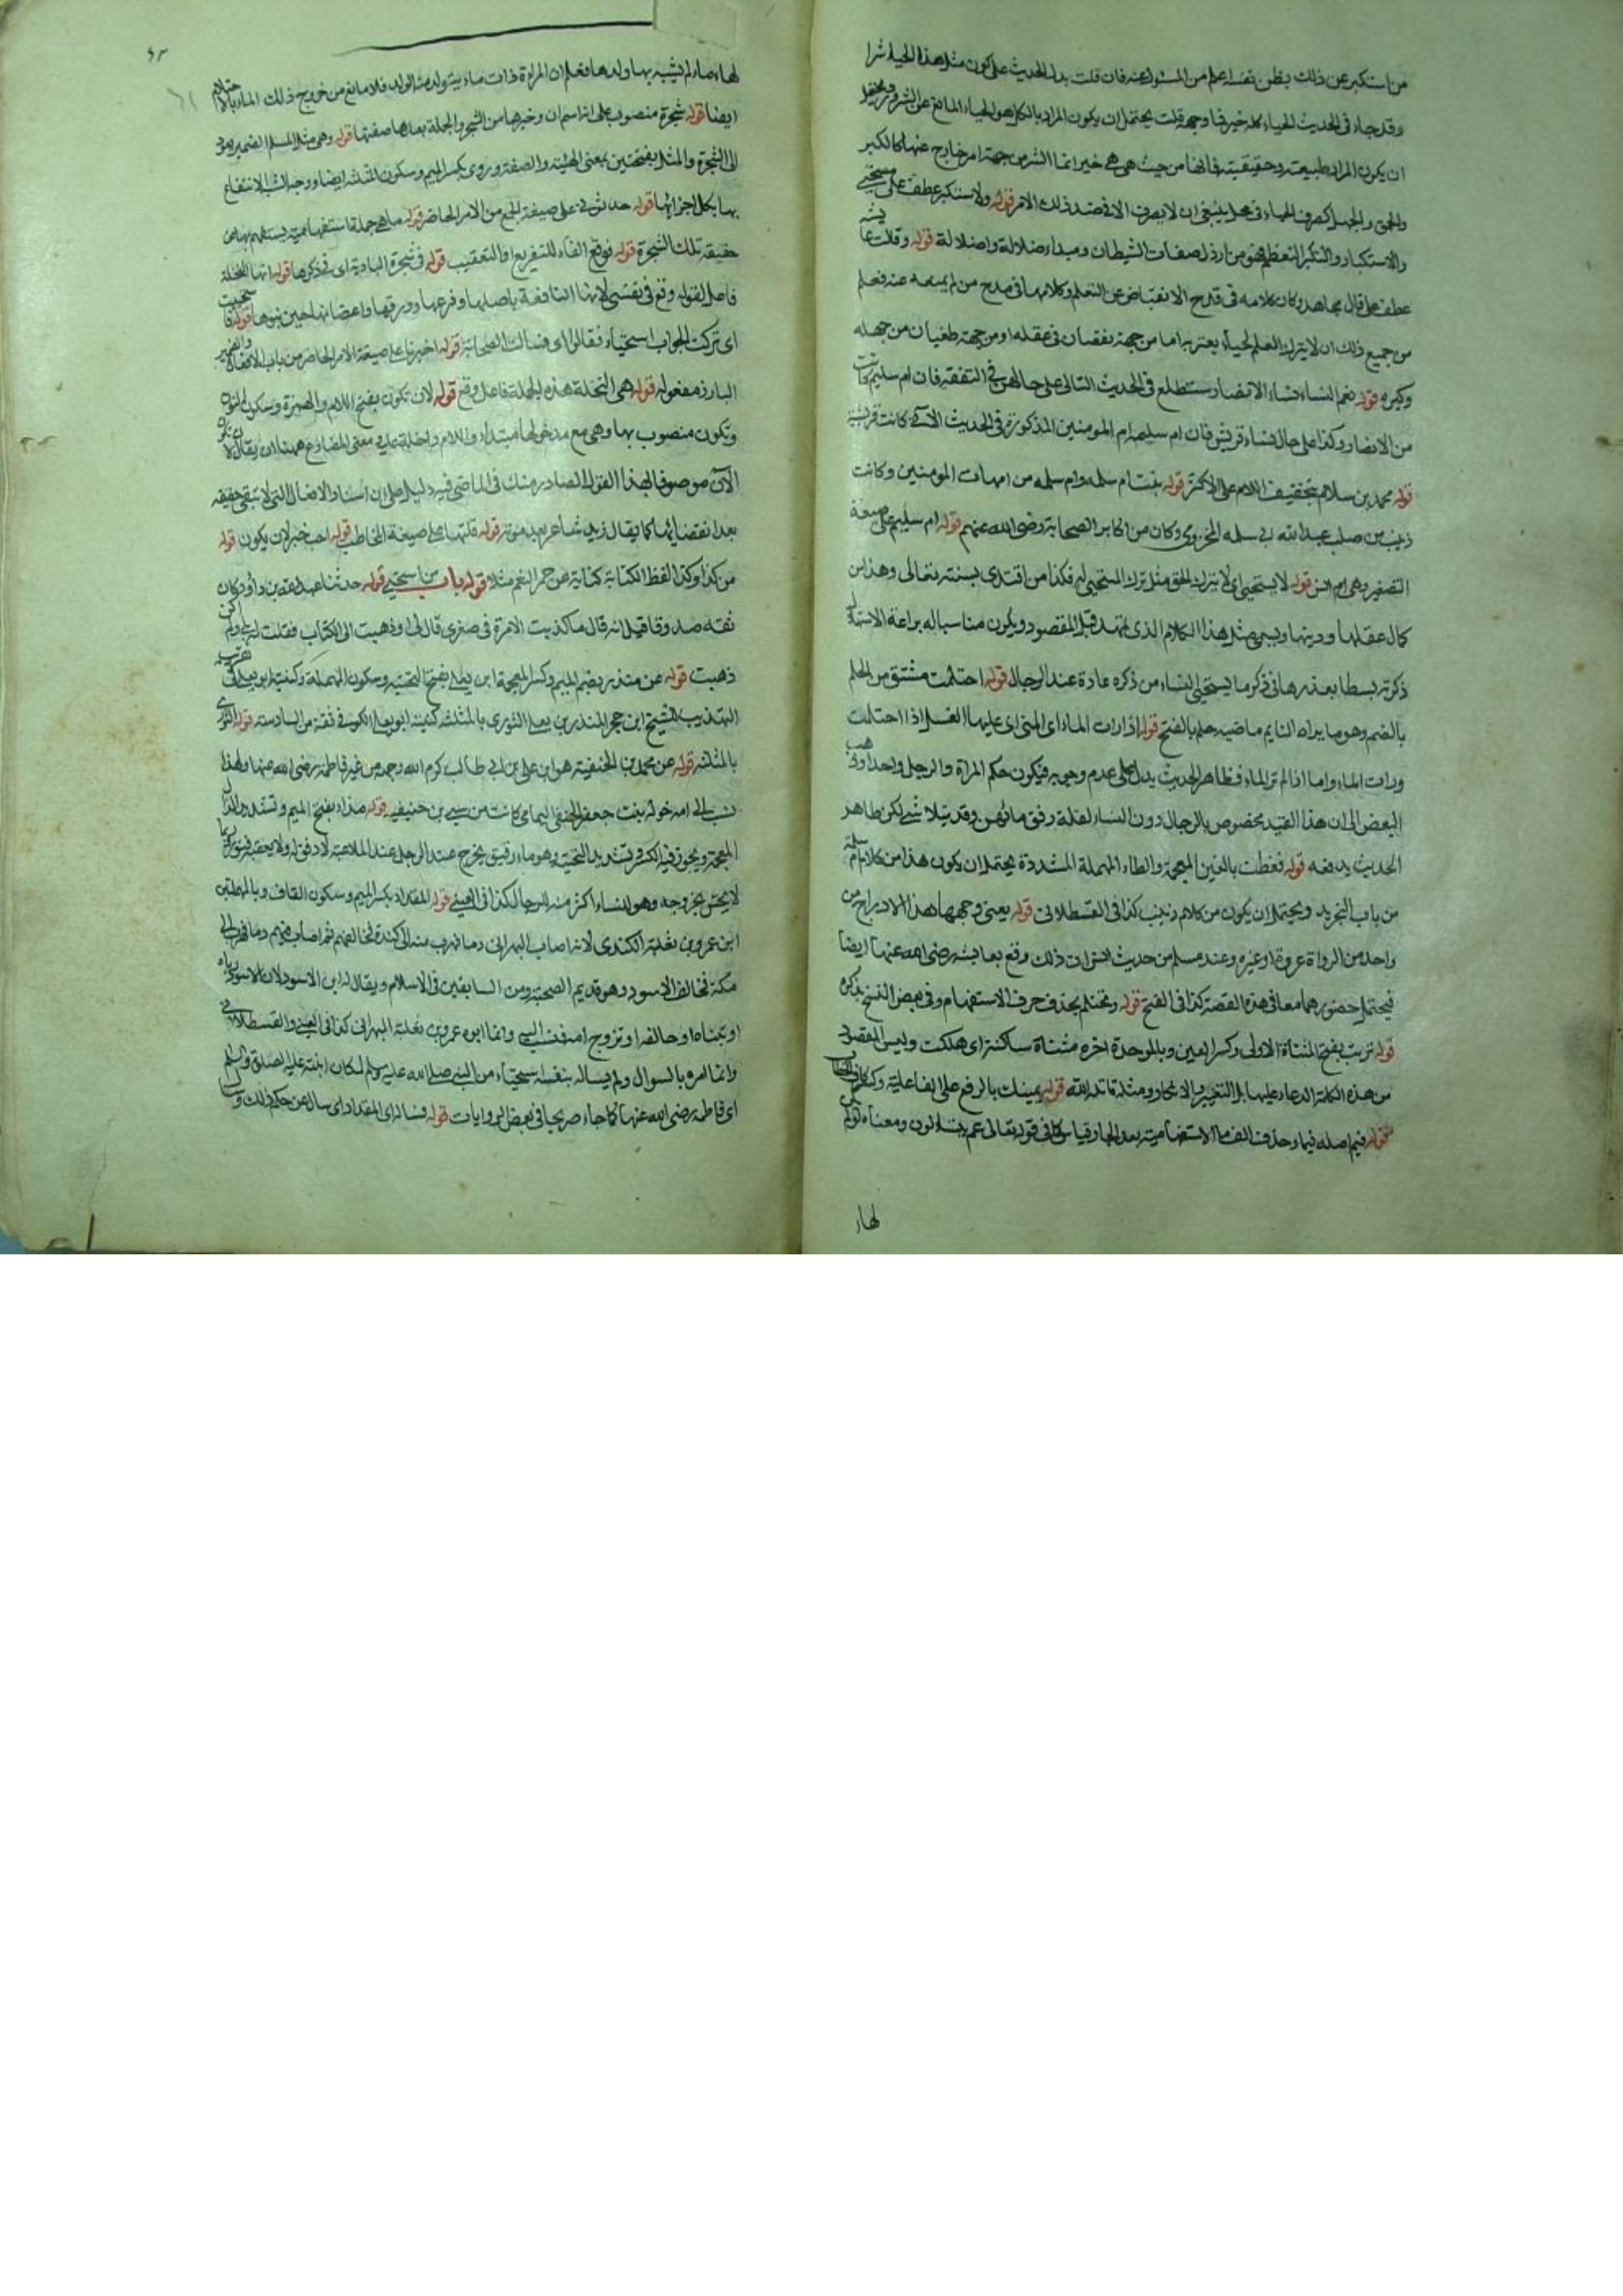 من استكبر عن ذلك يظن نفسه اعلم من المسئول عنه فان قلت يدل الحديث على كون مثل هذا الحياء شرا
وقد جاء في الحديث الحياء كله خير فما وجهه قلت يحتمل ان يكون المراد بالكل هو الحياء المانع عن الشرور ويحتمل
ان يكون المراد طبيعته وحقيقته فانها من حيث هي هي خير انما الشر من جهة امر خارج عنها كالكبر
والحمق والجهل كصرف الحياء في محل ينبغي ان لا يصرف الا في ضد ذلك الامر قوله ولا مستكبر عطف على مستحيي
والاستكبار والتكبر التعظم وهو من ارذل صفات الشيطان ومبداء ضلاله واضلاله قوله وقالت عائشه
عطف على قال مجاهد وكان كلامه في قدح الانقباض عن التعلم وكلامها في مدح من لم يمنعه عنه فعلم
من جميع ذلك ان لا يترك العلم لحياء يعتريه اما من جهة نقصان في عقله او من جهة طغيان من جهله
وكبره قوله نعم النساء نساء الانصار ستطلع في الحديث التالي على حالهن في التفقه فان ام سليم كانت
من الانصار وكذا على حال نساء قريش فان ام سلمه ام المومنين المذكورة في الحديث الآتي كانت قرشية
قوله محمد بن سلام بتخفيف اللام على الاكثر قوله بنت ام سلمه وام سلمه من امهات المومنين وكانت
زينب من صلب عبد الله ابي سلمه المخزومي وكان من اكابر الصحابة رضي الله عنهم قوله ام سليم على صيغة
التصغير وهي ام انس قوله لا يستحيي اي لا يترك الحق مثل ترك المستحيي له فكذا من اقتدى بسنته تعالى وهذا من
كمال عقلها ودينها ويسمى مثل هذا الكلام الذي يمهد قبل المقصود ويكون مناسبا له براعة الاستهلال
ذكرته بسطا بعذرها في ذكر ما يستحيي النساء من ذكره عادة عند الرجال قوله احتلمت مشتق من الحلم
بالضم وهو ما يراه النايم ماضيه حلم بالفتح قوله اذا رات الماء اي المني اي عليها الغسل اذا احتلمت
ورات الماء واما اذا لم تر الماء فظاهر الحديث يدل على عدم وجوبه فيكون حكم المراة والرجل واحدا وذهب
البعض الى ان هذا القيد مخصوص بالرجال دون النساء لقلة ورقة مائهن وقد يتلاشى لكن ظاهر
الحديث يدفعه قوله فغطت بالغين المعجمة والطاء المهملة المشددة يحتمل ان يكون هذا من كلام ام سلمة
من باب التجريد ويحتمل ان يكون من كلام زينب كذا في القسطلاني قوله يعني وجهها هذا الادراج من
واحد من الرواة عروة او غيره وعند مسلم من حديث انس ان ذلك وقع بعايشه رضي الله عنها ايضا
فيحتمل حضورهما معا في هذه القصة كذا في الفتح قوله وتحتلم بحذف حرف الاستفهام وفي بعض النسخ بذكره
قوله تربت بفتح المثناة الاولى وكسر العين وبالموحدة اخره مثناة ساكنة اي هلكت وليس المقصود
من هذه الكلمة الدعاء عليها بل التغيير والانكار ومثله قاتله الله قوله يمينك بالرفع على الفاعلية وكسر
قوله فبم اصله فبما وحذف الف ما الاستفهامية بعد الجار قياس كما في قوله تعالى عم يتساءلون ومعناه لو لم يكن
لها ء
لها ماء لم يشبه بها ولدها فعلم ان المراة ذات ماء يتولد منه الولد فلا مانع من خروج ذلك الماء بالاحتلام
ايضا قوله شجرة منصوب على انه اسم ان وخبرها من الشجر والجملة بعدها صفتها قوله وهي مثل المسلم الضمير يعود
الى الشجرة والمثل بفتحتين بمعنى الهيئة والصفة وروي بكسر الميم وسكون المثلثه ايضا ووجه الشبه الانتفاع
بها بكل اجزائها قوله حدثوني على صيغة الجمع من الامر الحاضر قوله ما هي جملة استفهامية يستفهم بها عن
حقيقة تلك الشجرة قوله فوقع الفاء للتفريع او التعقيب قوله في شجرة البادية اي في ذكرها قوله انها النخلة
فاعل لقوله وقع في نفسي لانها النافعة باصلها وفرعها وورقها واغصانها حين نموها قوله فاستحييت
اي تركت الجواب استحياء فقالوا اي فسالت الصحابة قوله اخبرنا على صيغة الامر الحاضر من باب الافعال والضمير
البارز مفعوله قوله هي النخلة هذه الجملة فاعل وقع قوله لان تكون بفتح اللام والهمزة وسكون النون
وتكون منصوب بها وهي مع مدخولها مبتداء واللام داخلة على معنى المضارع ههنا ان يقال لان تكون
الآن موصوفا بهذا القول الصادر منك في الماضي فيه دليل على ان اسناد الافعال التي لا تبقى حقيقة
بعد انقضائها كما يقال زيد شاعر بعد موته قوله قلتها على صيغة المخاطب قوله احب خبر لان يكون قوله
من كذا وكذا لفظ الكناية كناية عن حمر النعم مثلا قوله باب من استحيى قوله حدثنا عبد الله بن داؤد كان
ثقه صدوقا قيل انه قال ما كذبت الا مرة في صغري قال لي او ذهبت الى الكتاب فقلت له بلى ولم اكن
ذهبت قوله عن منذر بضم الميم وكسر المعجمة ابن يعلى بفتح التحتيه وسكون المهملة وكنيته ابو يعلى في تقريب
التهذيب للشيخ ابن حجر المنذر بن يعلى الثوري بالمثلثه كنيته ابو يعلى الكوفي ثقة من السادسه قوله الثوري
بالمثلثه قوله عن محمد بن الحنفيه هو ابن علي بن ابي طالب كرم الله وجهه من غير فاطمه رضي الله عنها ولهذا
نسب الى امه خوله بنت جعفر الحنفي اليمامي كانت من سبي بن حنيفيه قوله مذاء بفتح الميم وتشديد الذال
المعجمة ويجوز فيه الكسر وتشديد التحتيه وهو ماء رقيق يخرج عند الرجل عند الملاعبة لا دفق له ولا يعقبه فتور ربما
لا يحس بخروجه وهو للنساء اكثر منه للرجال كذا في العيني قوله المقداد بكسر الميم وسكون القاف وبالمهملتين
ابن عمرو بن ثعلبة الكندي لانه اصاب البهراني دما فهرب منه الى كندة فحالفهم ثم اصاب فيهم دما فهرب الى
مكة فحالف الاسود وهو قديم الصحبة ومن السابقين في الاسلام ويقال له ابن الاسود لان الاسود رباه
او تبناه او حالفه او تزوج امه فنسب اليه وانما ابوه عمرو بن ثعلبة البهراني كذا في العيني والقسطلاني
وانما امره بالسوال ولم يساله بنفسه استحياء من النبي صلى الله عليه وسلم لمكان ابنته عليه الصلوة والسلم
اي فاطمه رضي الله عنها كما جاء صريحا في بعض الروايات قوله فساله اي المقداد اي سال عن حكم ذلك